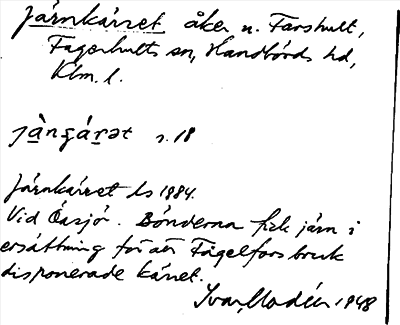 Järnkärret åker n. Farshult,
Fagerhults sn, Handbörds hd,
Klm. l.
jä̀ngárət s. 18
Järnkärret Ls 1884.
Vid Åasjö. Bönderna fick järn i
ersättning för att Fågelfors bruk
disponerade kärret.
Ivar Modéer 1948